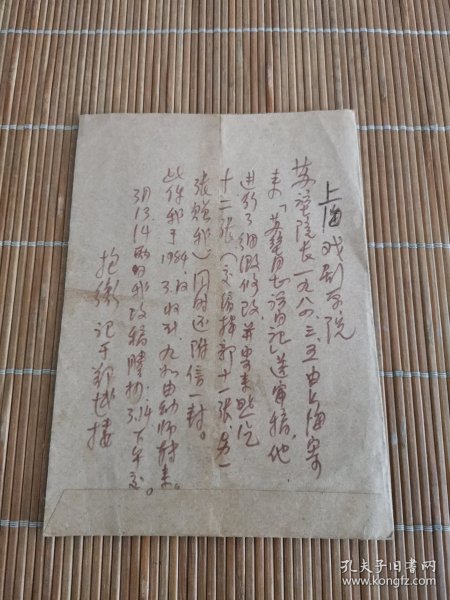 上海戏剧学院
苏堃院长一九八四.三.五由上海寄
来「苏堃自者语日记」送审稿，他
进行了细微修改并寄来照片
十二张（交编辑部十一张，另一
张赠我）同时还附信一封。
此件我于1984.
3.收到，九日由幼师转来。
3月13 14两日我改稿腾抄3.14下午交。
抱衡 记于郑城楼
孔夫子旧书网
www.kongfz.com